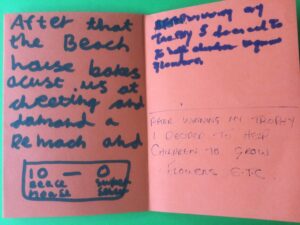 After that
the Beach
house bakes
acust us at
cheeting and
demand a
Remach and
10 — 0
Beace
House
Super
After winning my
Trophy I decied to
to help children to grow
flowers.
AFTER WINNING MY TROPHY
I DECIDED TO HELP
CHILDREN TO GROW
FLOWERS E.T.C.